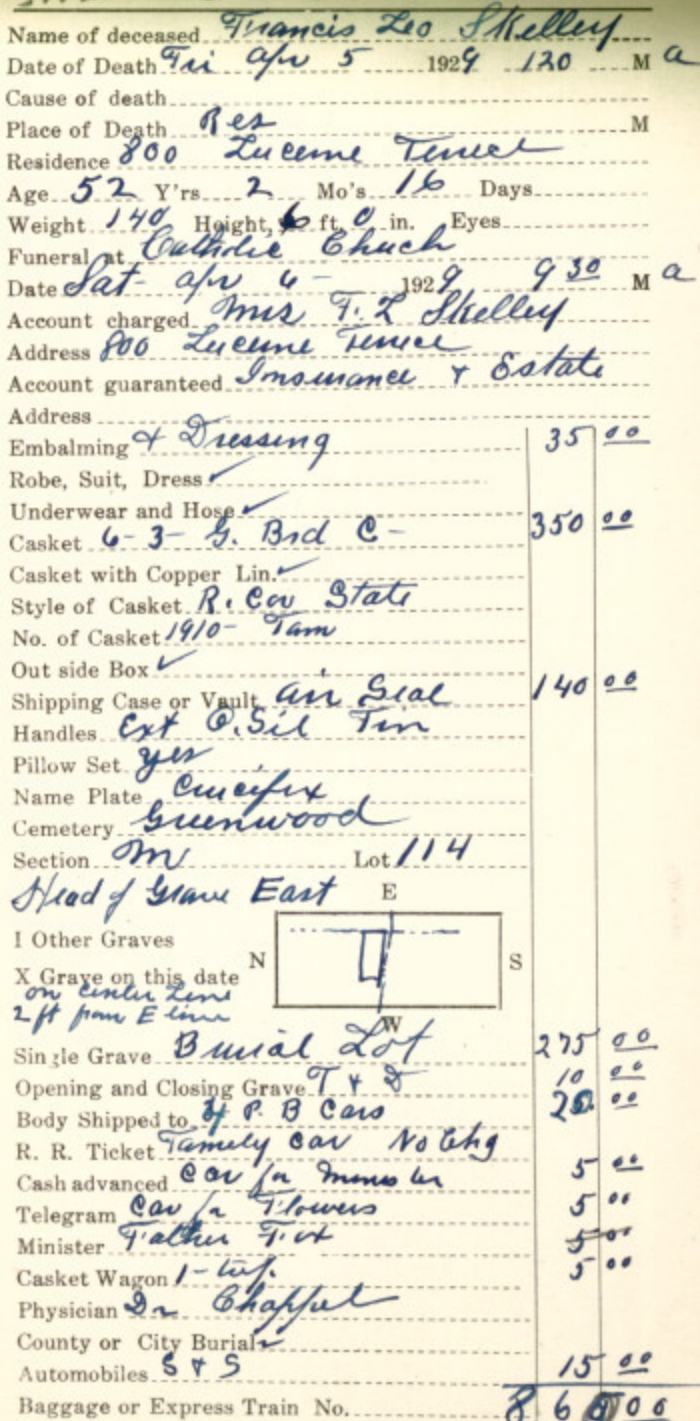 Name of deceased Francis Leo Skelley
Date of Death Fri Apr 5 1929 120 M a
Cause of death
Place of Death Res M
Residence 800 Lucerne Terrace
Age 52 Y'rs 2 Mo's 16 Days
Weight 140 Height, 6 ft, 0 in. Eyes
Funeral at Catholic Chuch
Date Sat- Apr 6- 1929 9 30 M a
Account charged Mrs F. L Skelley
Address 800 Lucerne Terrace
Account guaranteed Insurance & Estate
Address
Embalming & Dressing 35 00
Robe, Suit, Dress ✓
Underwear and Hose ✓
Casket 6-3- G. Brd C- 350 00
Casket with Copper Lin. ✓
Style of Casket R. Cor State
No. of Casket 1910- Tam
Out side Box ✓
Shipping Case or Vault Air Seal 140 00
Handles Ext O. Sil Tin
Pillow Set yes
Name Plate Crucifix
Cemetery Greenwood
Section M Lot 114
Head of Grave East
E
I Other Graves
N S
X Grave on this date
on Center Line
2 ft from E line
W
Single Grave Burial Lot 275 00
Opening and Closing Grave T & D 10 00
Body Shipped to 4 P. B Cars 20 00
R. R. Ticket Family Car No Chg
Cash advanced Car for Minister 5 00
Telegram Car for Flowers 5 00
Minister Father Fox 5 00
Casket Wagon 1- 5 00
Physician Dr Chappel
County or City Burial ✓
Automobiles S & S 15 00
Baggage or Express Train No. 86 00